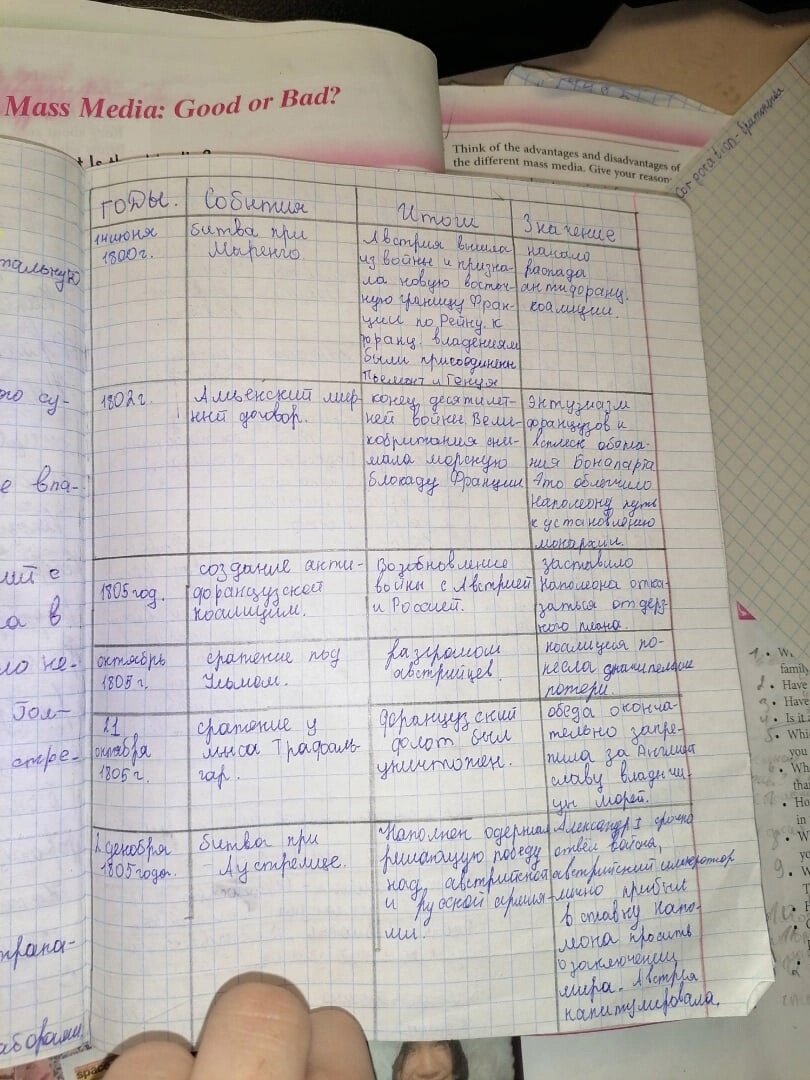 Mass Media: Good or Bad?
Think of the advantages and disadvantages of
the different mass media. Give your reason
corporation-
ГОДЫ.
События
Итоги
Значение
14 июня
1800г.
битва при
Маренго
Австрия вышла
из войны и призна-
ла новую восточ-
ную границу Фран-
ции по Рейну. К
франц. владениям
были присоединены
Пьемонт и Генуя
начало
распада
антифранц.
коалиции.
1802г.
Амьенский мир-
ный договор.
конец десятилет-
ней войны. Вели-
кобритания сни-
мала морскую
блокаду Франции
Энтузиазм
французов и
всплеск обожа-
ния Бонапарта
Это облегчило
Наполеону путь
к установлению
монархии.
1805 год.
создание анти-
французской
коалиции.
Возобновление
войны с Австрией
и Россией.
заставило
Наполеона отка-
заться от дерз-
кого плана.
октябрь
1805г.
сражение под
Ульмом.
разгромом
австрийцев.
коалиция по-
несла
потери.
21
октября
1805г.
сражение у
мыса Трафаль-
гар.
французский
флот был
уничтожен.
обеда оконча-
тельно
за Англией
славу владычи-
цы морей.
2 декабря
1805года.
битва при
Аустрелице.
одержал
решающую победу
над австрийской
и русской армия-
ми.
Александр I срочно
отвёл войска,
австрийский император
лично прибыл
в ставку Напо-
просить
о заключении
мира. Австрия
капитулировала.
тальную
ого су-
е впа-
ий с
а в
ло не-
Гол-
стре-
1. W
family
2. Have
3. Have
4. Is it
5. Whic
you
Wha
than
Ho
in
9.
space